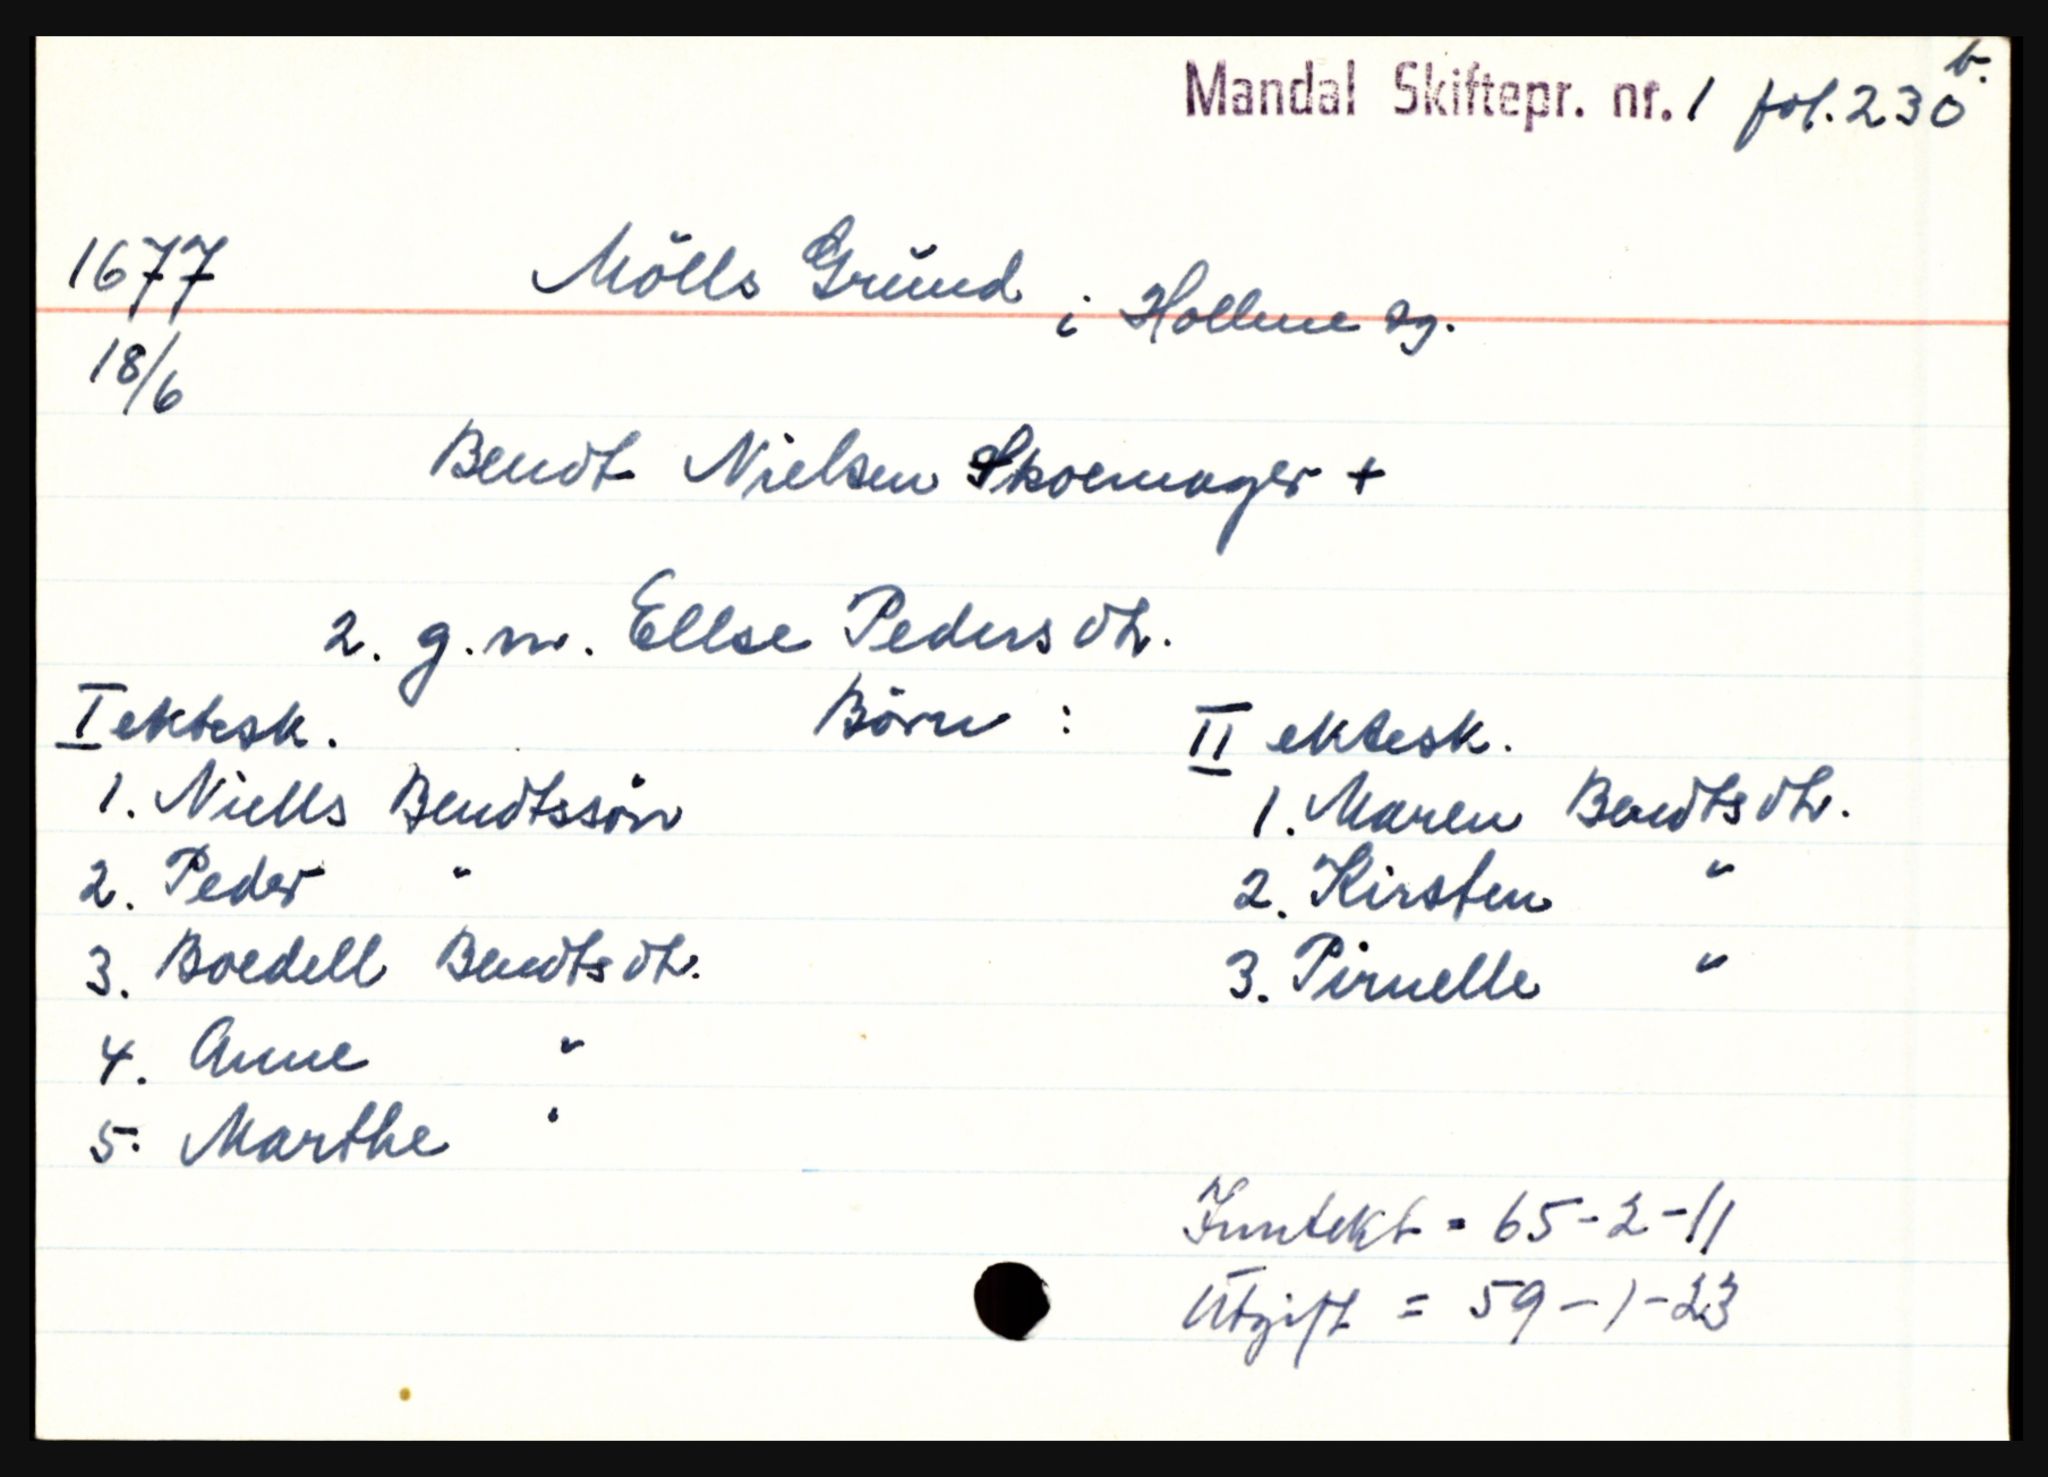 Mandal Skiftepr. nr. 1 fol. 230 b.
1677 Mölls Grŭnd i Hollme sg.
18/6
Bendt Nielsen Skoemager +
2. g.m. Ellse Pedersdtr.
I ektesk. Börn : II ektesk.
1. Niells Bendtssön 1. Maren Bendtsdtr.
2. Peder " 2. Kirsten "
3. Boedell Bendtsdtr. 3. Pirnelle "
4. Anne "
5. Marthe "
Inntekt = 65-2-11
Utgift = 59-1-23